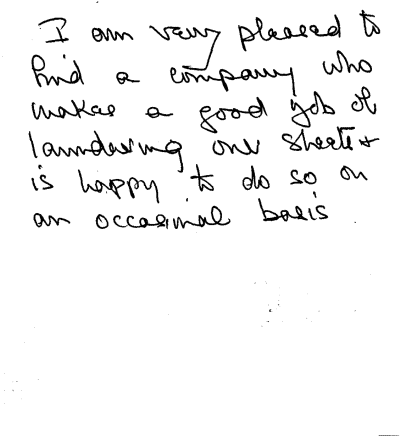 I am very pleased to
find a company who
makes a good job of
laundering our sheets +
is happy to do so on
an occasional basis